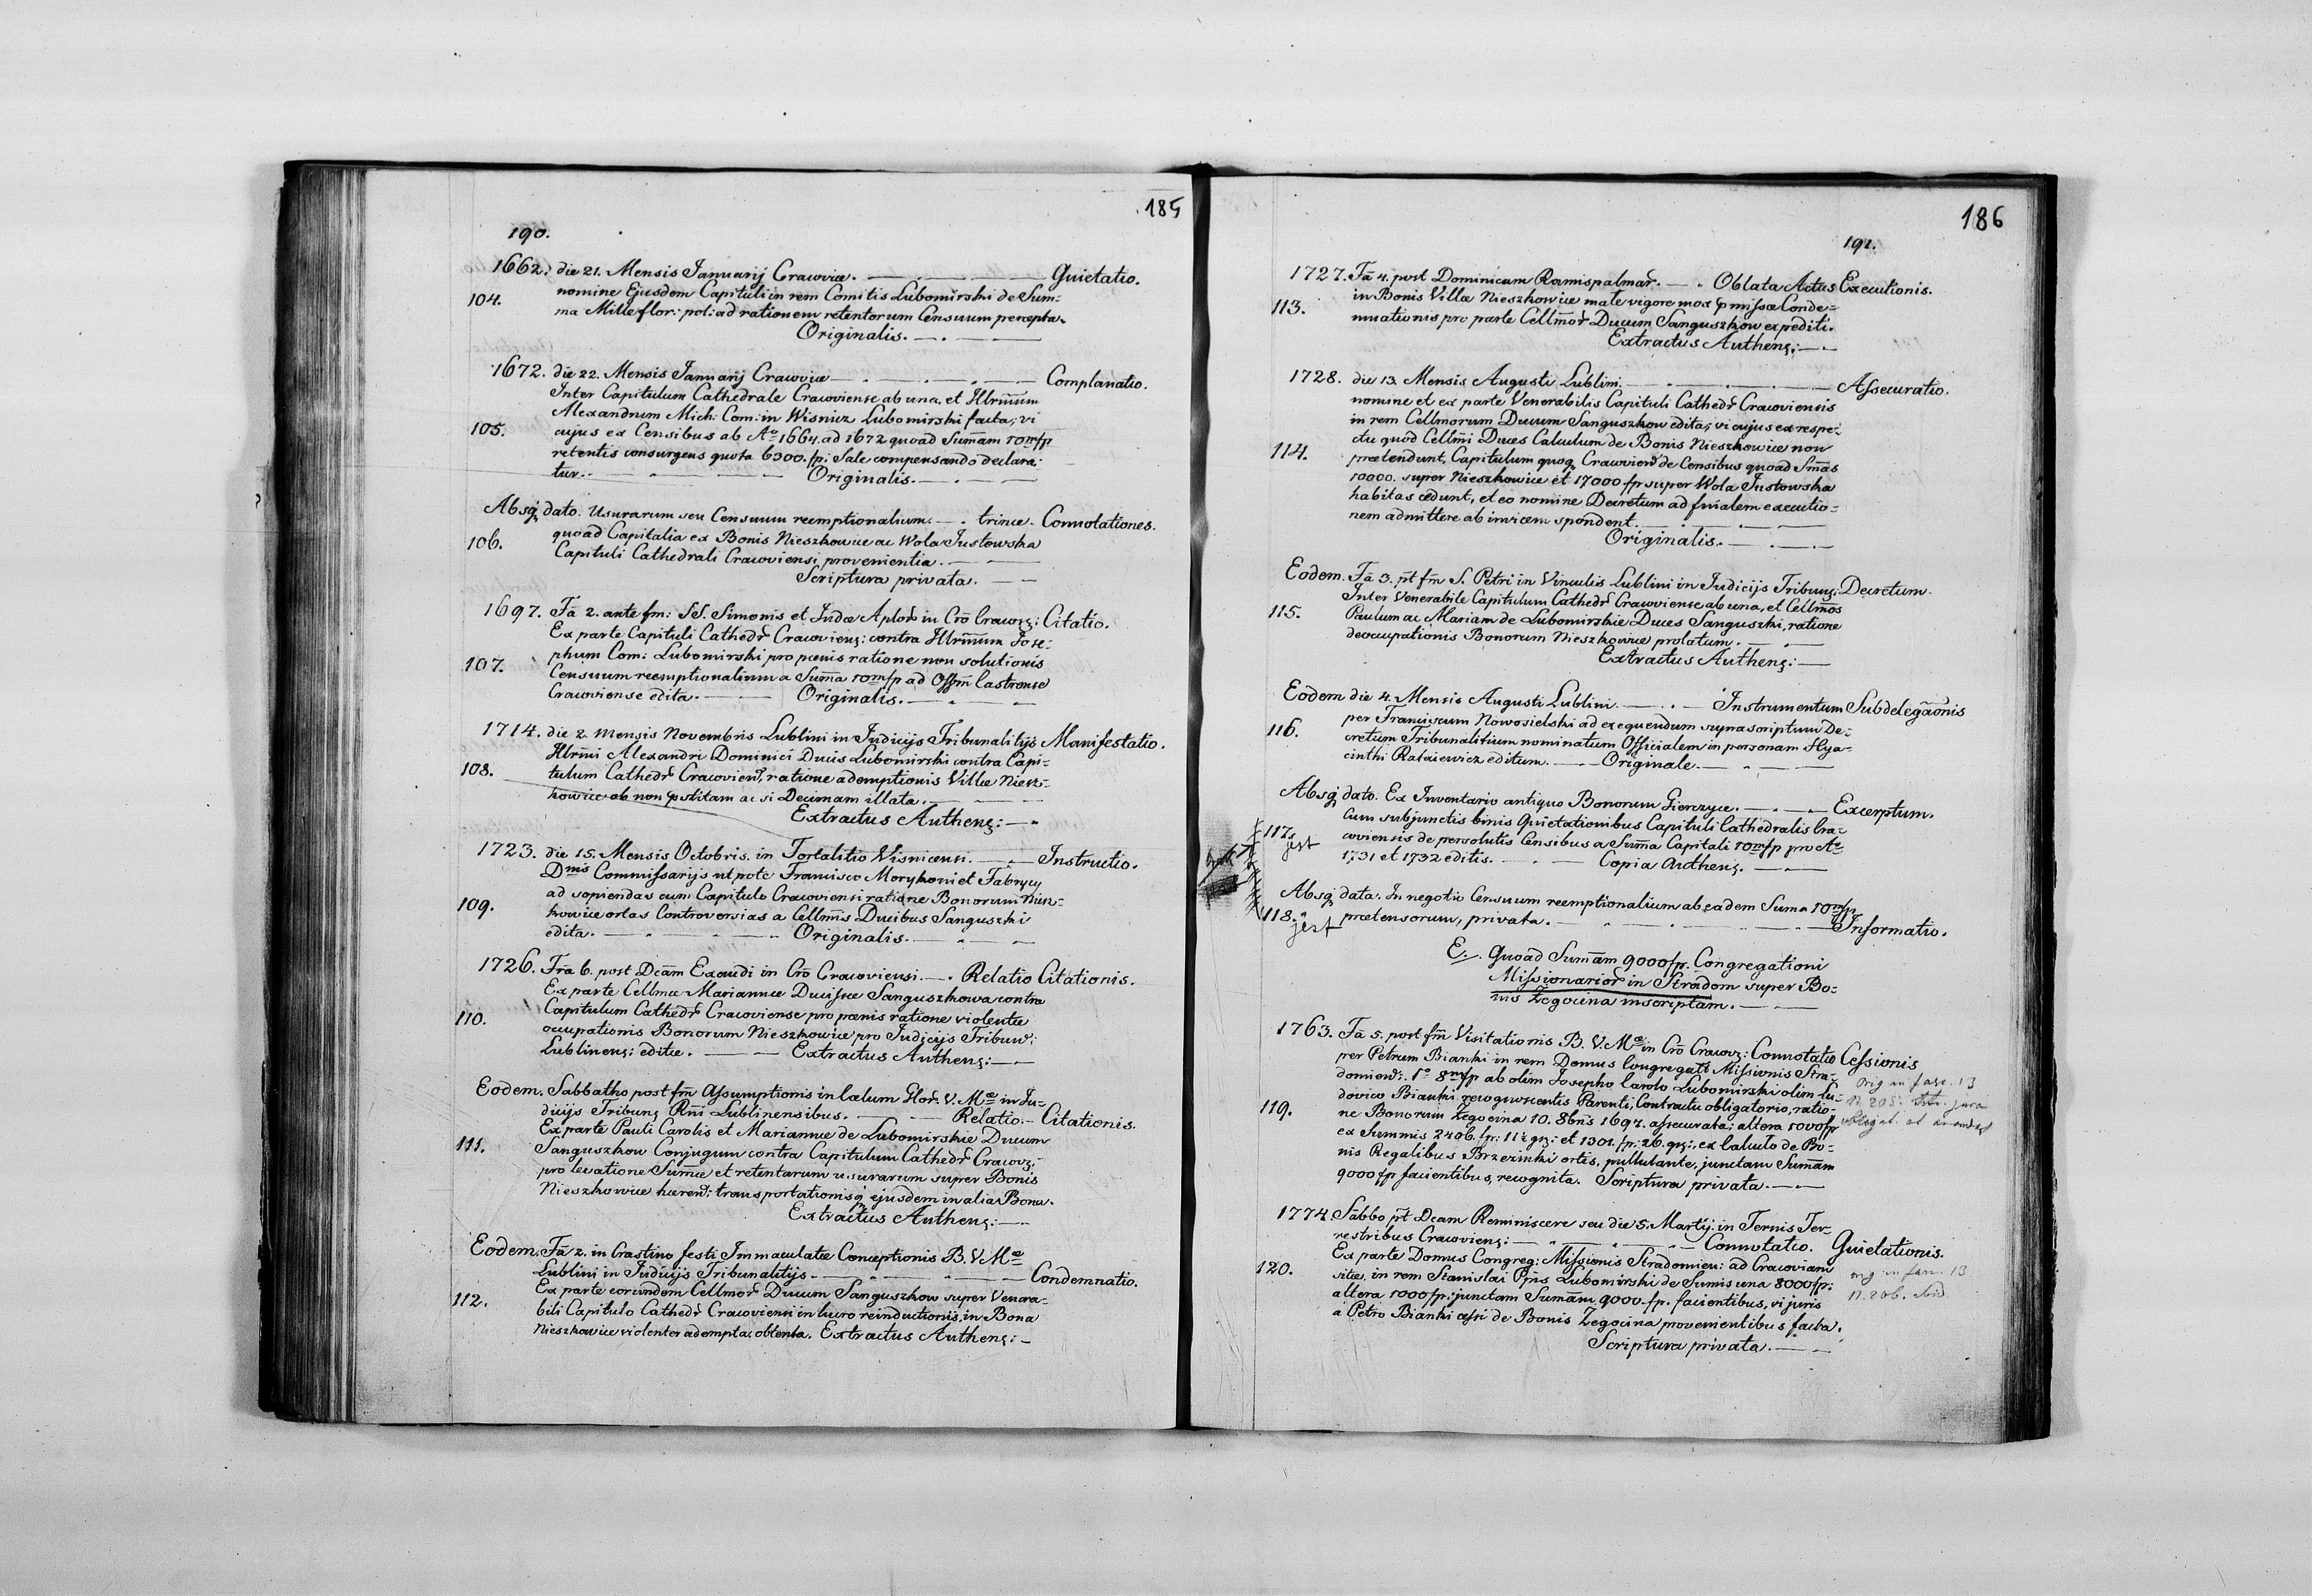 185
190.
1662. die 21. Mensis Januarij Cracoviæ. Quietatio.
nomine Ejusdem Capituli in rem Comitis Lubomirski de Sum-
104.
ma Mille flor: pol: ad rationem retentorum Censuum percepta.
Originalis.
1672. die 22. Mensis Januarij Cracoviæ Complanatio.
Inter Capitulum Cathedrale Cracoviense ab una, et Illrm̃um
Alexandrum Mich: Com: in Wisnicz Lubomirski facta, vi
105.
cujus ex Censibus ab Aº 1664. ad 1672 quoad Sum̃am 10m/fp
retentis consurgens quota 6300. fp: Sale compensando declara-
tur. Originalis.
Absq dato. Usurarum seu Censuum reemptionalium. trinæ. Connotationes.
106.
quoad Capitalia ex Bonis Nieszkowice ac Wola Justowska
Capituli Cathedrali Cracoviensi provenientia.
Scriptura privata.
1697. Fã 2. ante fm: SS. Simonis et Judæ Aplor in Crõ Cracovg: Citatio.
Ex parte Capituli Cathedr Cracovieng: contra Illrm̃um Jose-
107.
phum Com: Lubomirski pro pœnis ratione non solutionis
Censuum reemptionalium a Sum̃a 10m/fp ad Offm̃ Castrense
Cracoviense edita. Originalis.
1714. die 2. Mensis Novembris Lublini in Judicijs Tribunalitijs Manifestatio.
Illrm̃i Alexandri Dominici Ducis Lubomirski contra Capi-
108.
tulum Cathedr Cracovien, ratione ademptionis Villæ Niesz-
kowice ob non pstitam ac si Decimam illata.
ExtractusAutheng:
1723. die 15. Mensis Octobris. in Fortalitio Visnicensi. Instructio.
Dnis Commissarijs utpote Francisco Morykoni et Fabrycy
109.
ad sopiendas cum Capitulo Cracoviensi ratione Bonorum Niesz-
kowice ortas Controversias a Cellmis Ducibus Sanguszki
edita. Originalis.
1726. Fria 6. post Dcam Exaudi in Crõ Cracoviensi. Relatio Citationis.
Ex parte Cellmæ Mariannæ Ducissæ Sanguszkowa contra
110.
Capitulum Cathedr Cracoviense pro pœnis ratione violentæ
occupationis Bonorum Nieszkowice pro Judicijs Tribun:
Lublineng: editæ. Extractus Autheng:
Eodem. Sabbatho post fm̃ Assumptionis in Cœlum Glor. V. Mæ in Ju-
dicijs Tribung Rñi Lublinensibus. Relatio Citationis.
Ex parte Pauli Carolis et Mariannæ de Lubomirskie Ducum
111.
Sanguszkow Conjugum contra Capitulum Cathedr Cracovg:
pro levatione Sum̃æ et retentarum usurarum super Bonis
Nieszkowice hæren: transportationisq ejusdem in alia Bona.
Extractus Autheng:
Eodem. Fã 2. in Crastino festi Immaculatæ Conceptionis B. V. Mæ
Lublini in Judicijs Tribunalitijs. Condemnatio.
Ex parte eorundem Cellmor Ducum Sanguszkow super Venera-
112.
bili Capitulo Cathedr Cracoviensi in lucro reinductionis in Bona
Nieszkowice violenter adempta, obtenta. Extractus Autheng:
186
191.
1727. Fã 4. post Dominicam Ramispalmar. Oblata Actus Executionis.
113.
in Bonis Villæ Nieszkowice male vigore mox pmissæ Conde-
mnationis pro parte Cellmor Ducum Sanguszkow expediti.
Extractus Autheng:
1728. die 13. Mensis Augusti Lublini. Assecuratio.
nomine et ex parte Venerabilis Capituli Cathedr Cracoviensis
in rem Cellmorum Ducum Sanguszkow edita, vi cujus ex respe-
114.
ctu quod Cellm̃i Duces Calculum de Bonis Nieszkowice non
prætendunt, Capitulum quoq Cracovien de Censibus quoad Sm̃as
10000. super Nieszkowice et 17000 fp super Wola Justowska
habitas cedunt, et eo nomine Decretum ad finalem executio-
nem admittere ab invicem spondent.
Originalis.
Eodem. Fã 3. pt fm̃ S. Petri in Vinculis Lublini in Judicijs Tribung: Decretum.
Inter Venerabile Capitulum Cathedr Cracoviense ab una, et Cellmos
115.
Paulum ac Mariam de Lubomirskie Duces Sanguszki, ratione
deoccupationis Bonorum Nieszkowice prolatum.
Extractus Autheng:
Eodem die 4. Mensis Augusti Lublini. Instrumentum Subdelegãonis
116.
per Franciscum Nowosielski ad exequendum suprascriptum De-
cretum Tribunalitium nominatum Officialem in personam Hya-
cinthi Rataiewicz editum. Originale.
Absq dato. Ex Inventario antiquo Bonorum Gierczyce. Excerptum.
117.
jest
Cum subjunctis binis Quietationibus Capituli Cathedralis Cra-
coviensis de persolutis Censibus a Sum̃a Capitali 10m/fp pro Aº
1731 et 1732 editis. Copia Autheng.
Absq data. In negotio Censuum reemptionalium ab eadem Suma 10m/fp
118.
jest
prætensorum, privata. Informatio.
E. Quoad Sum̃am 9000 fp. Congregationi
Missionarior in Stradom super Bo-
nis Żegocina inscriptam.
1763. Fã 5. post fm̃ Visitationis B. V. Mæ in Crõ Cracovg: Connotatio Cessionis
per Petrum Bianki in rem Domus Congregatt Missionis Stra-
domien: 1º 8m/fp ab olim Josepho Carolo Lubomirski olim Lu-
orig in fasc. 13
119.
dovico Bianki recognoscentis Parenti, Contractu obligatorio, ratio-
N 205:
ne Bonorum Żegocina 10. 8bris 1697. assecurata; altera 1000 fp
ex Summis 2406. fp: 11½ gr: et 1301. fp: 26. gr:, ex Calculo de Bo-
nis Regalibus Brzezinki ortis, pullulante, junctam Sum̃am
9000 fp facientibus, recognita. Scriptura privata.
1774. Sabbo pt Dcam Reminiscere seu die 5. Martij. in Ternis Ter-
restribus Cracovieng: Connotatio. Quietationis.
120.
Ex parte Domus Congreg: Missionis Stradomien: ad Cracoviam
sitæ, in rem Stanislai Ppis Lubomirski de Sumis una 8000 fp:
orig in fasc. 13
altera 1000 fp: junctam Sum̃am 9000. fp. facientibus, vi juris
N. 206.
a Petro Bianki cessi de Bonis Żegocina provenientibus facta.
Scriptura privata.